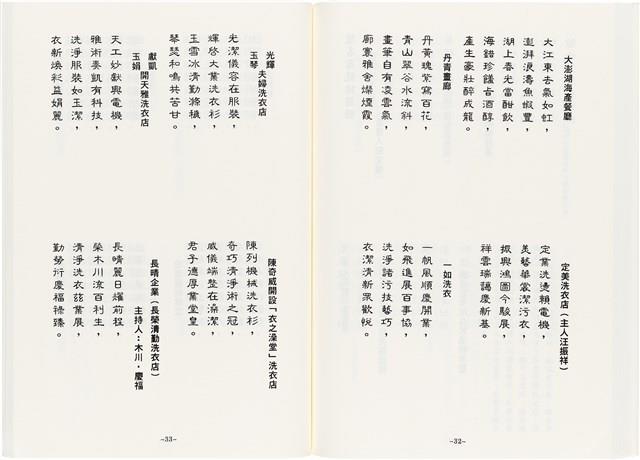 大澎湖海產餐廳
大江東去氣如虹，
澎湃浪濤魚蝦豐，
湖上春光當酣飲，
海錯珍饈旨酒醇，
產生豪壯醉成龍。
丹青畫廊
丹黃魂紫寫百花，
青山翠谷水流斜，
畫筆自有凌雲氣，
廊寰雅舍燦煙霞。
定美洗衣店（主人汪振祥）
定業洗燙賴電機，
美藝華裳潔污衣，
振興鴻圖今駿展，
祥雲瑞靄慶新基。
一如洗衣
一帆風順慶開業，
如飛進展百事協，
洗淨諸污技藝巧，
衣潔清新眾歡悅。
~32~
光輝
玉琴 夫婦洗衣店
光潔儀容在服裝，
輝啓大業洗衣衫，
玉雪冰清勤滌穢，
琴瑟和鳴共苦甘。
獻凱
玉娟 開天雅洗衣店
天工妙獻興電機，
雅術奏凱有科技，
洗淨服裝如玉潔，
衣新煥彩益娟麗。
陳奇威開設「衣之澡堂」洗衣店
陳列機械洗衣衫，
奇巧清淨術之冠，
威儀端整在澡潔，
君子德厚業堂皇。
長晴企業（長榮清勤洗衣店）
主持人：木川・慶福
長晴麗日耀前程，
榮木川流百利生，
清淨洗衣茲業展，
勤勞衍慶福祿臻。
~33~